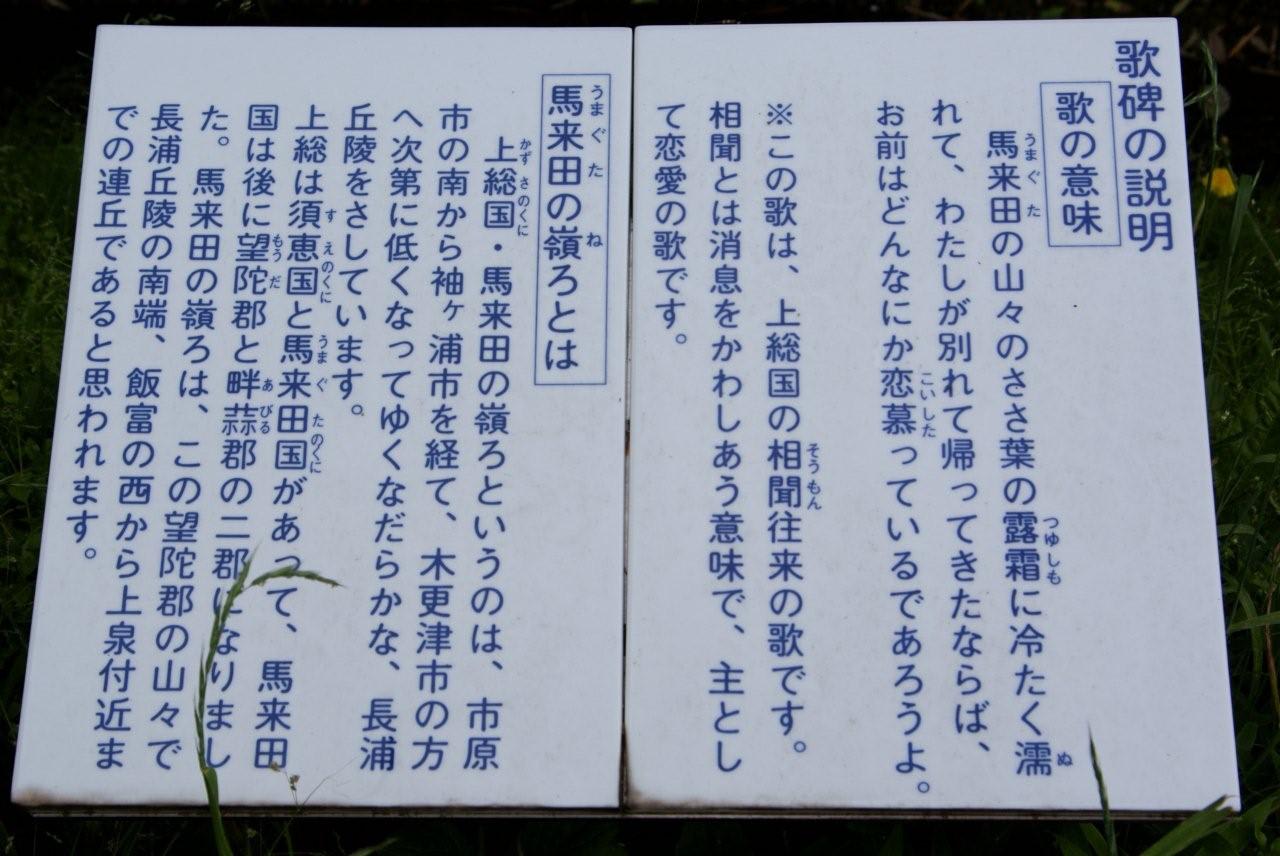 歌碑の説明
歌の意味
馬来田の山々のささ葉の露霜に冷たく濡
れて、わたしが別れて帰ってきたならば、
お前はどんなにか恋慕っているであろうよ。
※この歌は、上総国の相聞往来の歌です。
相聞とは消息をかわしあう意味で、主とし
て恋愛の歌です。
馬来田の嶺ろとは
上総国・馬来田の嶺ろというのは、市原
市の南から袖ヶ浦市を経て、木更津市の方
へ次第に低くなってゆくなだらかな、長浦
丘陵をさしています。
上総は須恵国と馬来田国があって、馬来田
国は後に望陀郡と畔蒜郡の二郡になりまし
た。馬来田の嶺ろは、この望陀郡の山々で
長浦丘陵の南端、飯富の西から上泉付近ま
での連丘であると思われます。